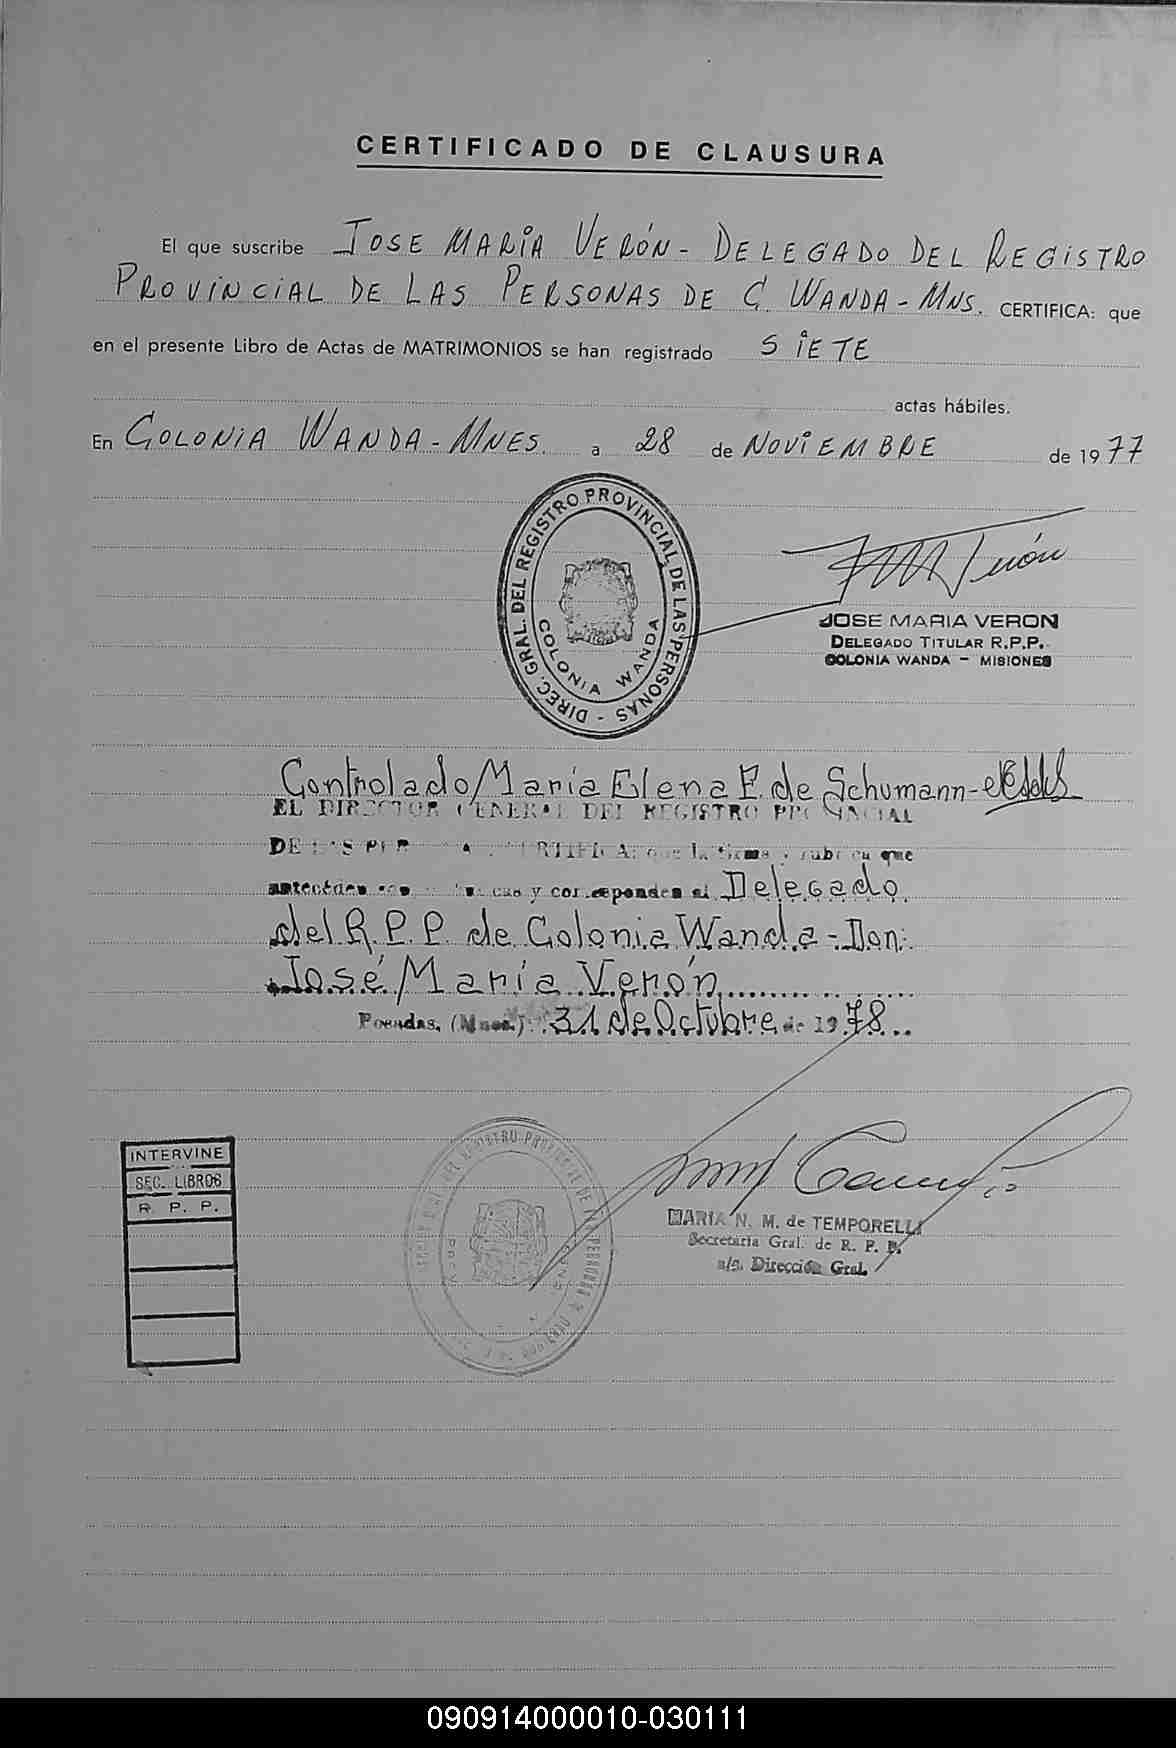 CERTIFICADO DE CLAUSURA
El que suscribe JOSE MARÍA VERÓN - DELEGADO DEL REGISTRO
PROVINCIAL DE LAS PERSONAS DE C. WANDA - MNS. CERTIFICA: que
en el presente Libro de Actas de MATRIMONIOS se han registrado SIETE
actas hábiles.
En COLONIA WANDA - MNES. a 28 de NOVIEMBRE de 1977
DIREC. GRAL. DEL REGISTRO PROVINCIAL DE LAS PERSONAS -
COLONIA WANDA
JMVerón
JOSE MARIA VERON
DELEGADO TITULAR R.P.P.
COLONIA WANDA - MISIONES
Controlado María Elena F. de Schumann -
EL DIRECTOR GENERAL DEL REGISTRO PROVINCIAL
DE LAS PER CERTIFICA: que la firma y rubrica que
anteceden son y corresponden al Delegado
del R.P.P. de Colonia Wanda - Don:
José María Verón
Posadas, (Mnes.) 31 de Octubre de 1978
INTERVINE
SEC. LIBROS
R. P. P.
MARIA N. M. de TEMPORELLI
Secretaria Gral. de R. P. P.
a/c. Dirección Gral.
090914000010-030111